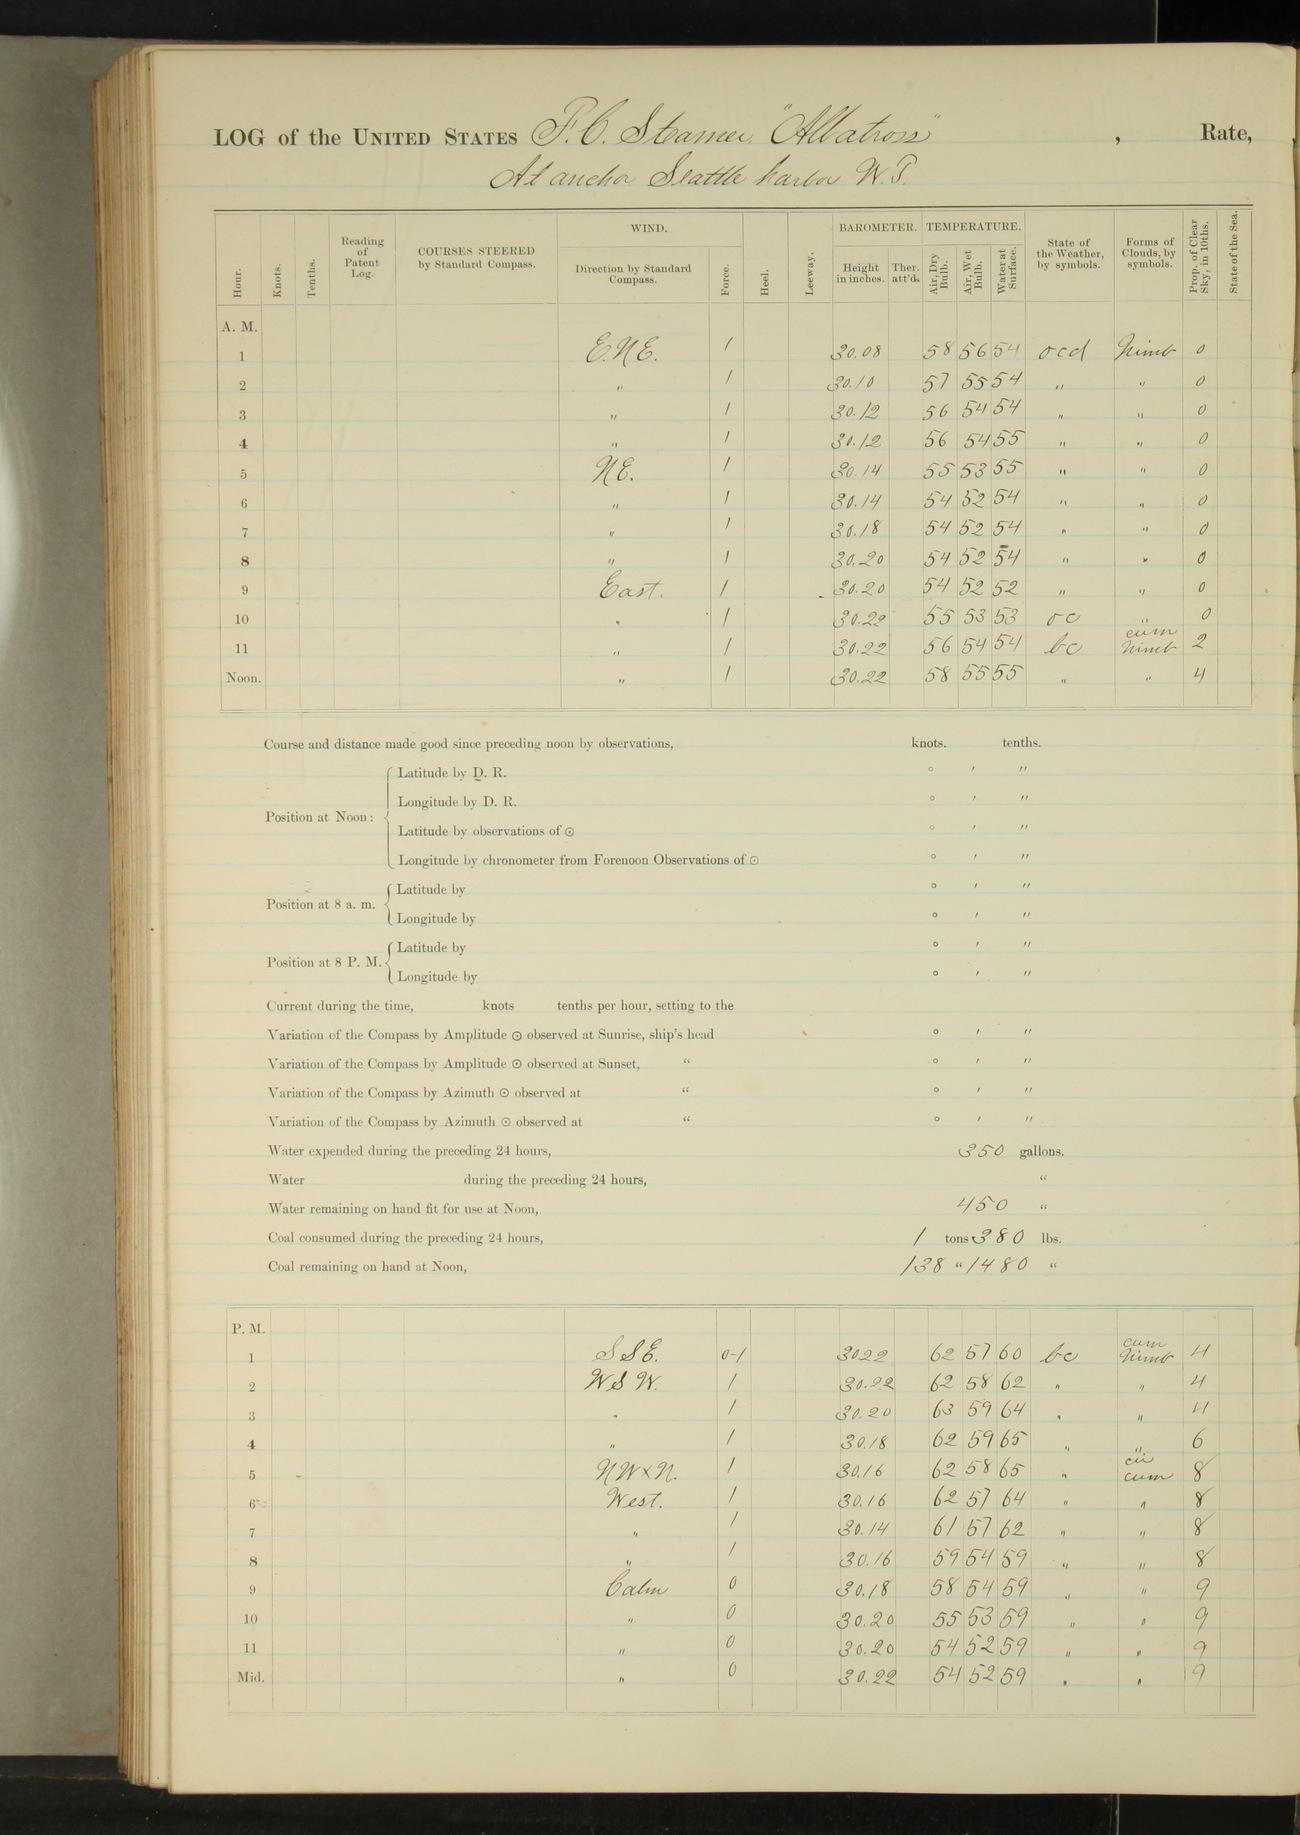 LOG of the UNITED STATES F. C. Steamer "Albatross", Rate,
At anchor Seattle harbor W. T.
Hour. Knots. Tenths. Reading of Patent Log. COURSES STEERED by Standard Compass. WIND. Direction by Standard Compass. Force. Heel. Leeway. BAROMETER. Height in inches. Ther. att'd. TEMPERATURE. Air, Dry Bulb. Air, Wet Bulb. Water at Surface. State of the Weather, by symbols. Forms of Clouds, by symbols. Prop. of Clear Sky, in 10ths. State of the Sea.
A. M.
1 E.N.E. 1 30.08 58 56 54 ocd Nimb 0
2 " 1 30.10 57 55 54 " " 0
3 " 1 30.12 56 54 54 " " 0
4 " 1 30.12 56 54 55 " " 0
5 NE. 1 30.14 55 53 55 " " 0
6 " 1 30.14 54 52 54 " " 0
7 " 1 30.18 54 52 54 " " 0
8 " 1 30.20 54 52 54 " " 0
9 East. 1 30.20 54 52 52 " " 0
10 " 1 30.22 55 53 53 oc " 0
11 " 1 30.22 56 54 54 bc cum Nimb 2
Noon. " 1 30.22 58 55 55 " " 4
Course and distance made good since preceding noon by observations, knots. tenths.
Position at Noon: Latitude by D. R. ° ′ ″
Longitude by D. R. ° ′ ″
Latitude by observations of ☉ ° ′ ″
Longitude by chronometer from Forenoon Observations of ☉ ° ′ ″
Position at 8 a. m. Latitude by ° ′ ″
Longitude by ° ′ ″
Position at 8 P. M. Latitude by ° ′ ″
Longitude by ° ′ ″
Current during the time, knots tenths per hour, setting to the
Variation of the Compass by Amplitude ☉ observed at Sunrise, ship's head ° ′ ″
Variation of the Compass by Amplitude ☉ observed at Sunset, " ° ′ ″
Variation of the Compass by Azimuth ☉ observed at " ° ′ ″
Variation of the Compass by Azimuth ☉ observed at " ° ′ ″
Water expended during the preceding 24 hours, 350 gallons.
Water during the preceding 24 hours, "
Water remaining on hand fit for use at Noon, 450 "
Coal consumed during the preceding 24 hours, 1 tons 380 lbs.
Coal remaining on hand at Noon, 138 " 1480 "
P. M.
1 SSE. 0-1 3022 62 57 60 bc cum Nimb 4
2 WSW. 1 30.22 62 58 62 " " 4
3 " 1 30.20 63 59 64 " " 4
4 " 1 30.18 62 59 65 " " 6
5 NWxN. 1 30.16 62 58 65 " cu cum 8
6 West. 1 30.16 62 57 64 " " 8
7 " 1 30.14 61 57 62 " " 8
8 " 1 30.16 59 54 59 " " 8
9 Calm 0 30.18 58 54 59 " " 9
10 " 0 30.20 55 53 59 " " 9
11 " 0 30.20 54 52 59 " " 9
Mid. " 0 30.22 54 52 59 " " 9